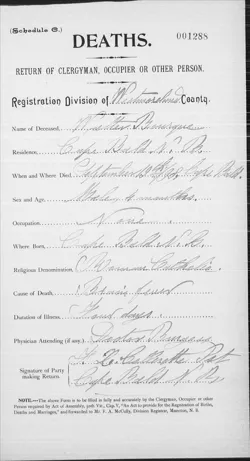 (Schedule C.)
DEATHS.
001288
RETURN OF CLERGYMAN, OCCUPIER OR OTHER PERSON.
Registration Division of Westmorland County.
Name of Deceased, Bourque
Residence, Cape Bald N. B.
When and Where Died, September Cape Bald
Sex and Age, Male, months
Occupation, None
Where Born, Cape Bald N. B.
Religious Denomination, Roman Catholic
Cause of Death, Brain fever
Duration of Illness, days
Physician Attending (if any), Doctor
Signature of Party
making Return,
Cape Bald N. B.
NOTE.—The above Form is to be filled in fully and accurately by the Clergyman, Occupier or other
Person required by Act of Assembly, 50th Vic., Cap. V, "An Act to provide for the Registration of Births,
Deaths and Marriages," and forwarded to Mr. F. A. McCully, Division Registrar, Moncton, N. B.